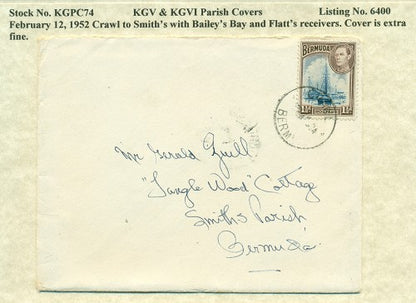 Stock No. KGPC74 KGV & KGVI Parish Covers Listing No. 6400
February 12, 1952 Crawl to Smith's with Bailey's Bay and Flatt's receivers. Cover is extra
fine.
BERMUDA
1½d
BERM
Mr Gerald Zuill
"Tangle Wood" Cottage
Smiths Parish
Bermuda.